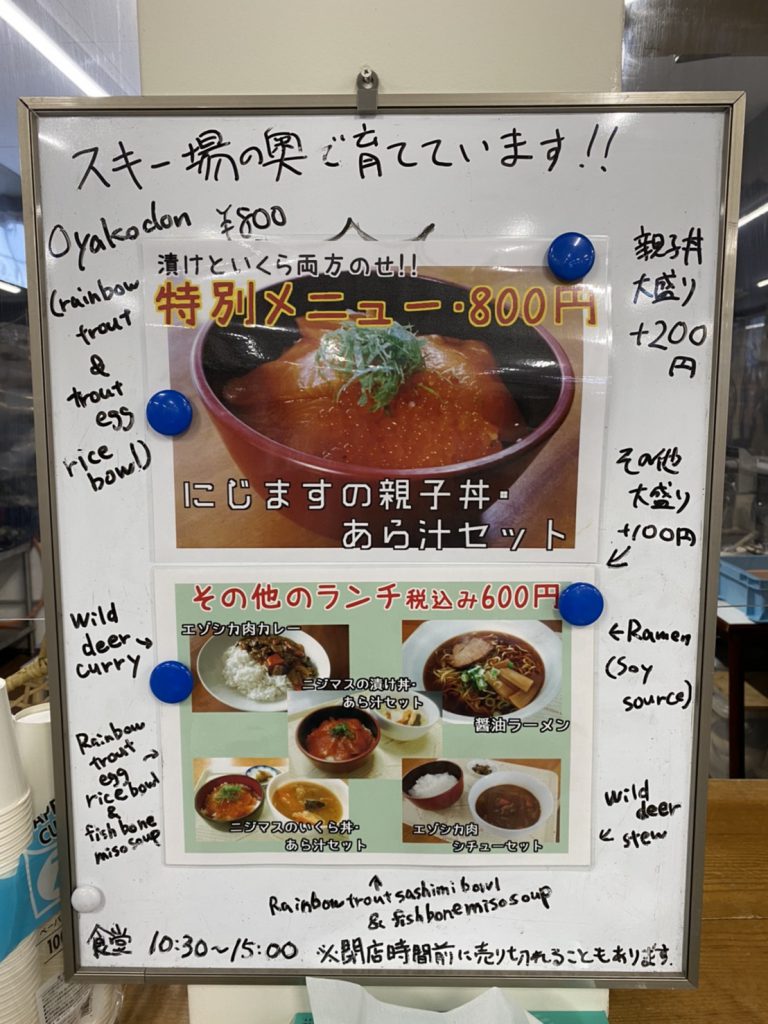 スキー場の奥で育てています!!
Oyakodon ¥800
(rainbow
trout
&
trout
egg
rice
bowl)
漬けといくら両方のせ!!
特別メニュー・800円
にじますの親子丼・
あら汁セット
親子丼
大盛り
+200
円
その他
大盛り
+100円
その他のランチ税込み600円
エゾシカ肉カレー
ニジマスの漬け丼・
あら汁セット
醤油ラーメン
ニジマスのいくら丼・
あら汁セット
エゾシカ肉
シチューセット
wild
deer →
curry
Rainbow
trout
egg →
rice bowl
&
fish bone
miso soup
←Ramen
(Soy
source)
wild
deer
← stew
↑
Rainbow trout sashimi bowl
& fish bone miso soup
食堂 10:30~15:00 ※閉店時間前に売り切れることもあります